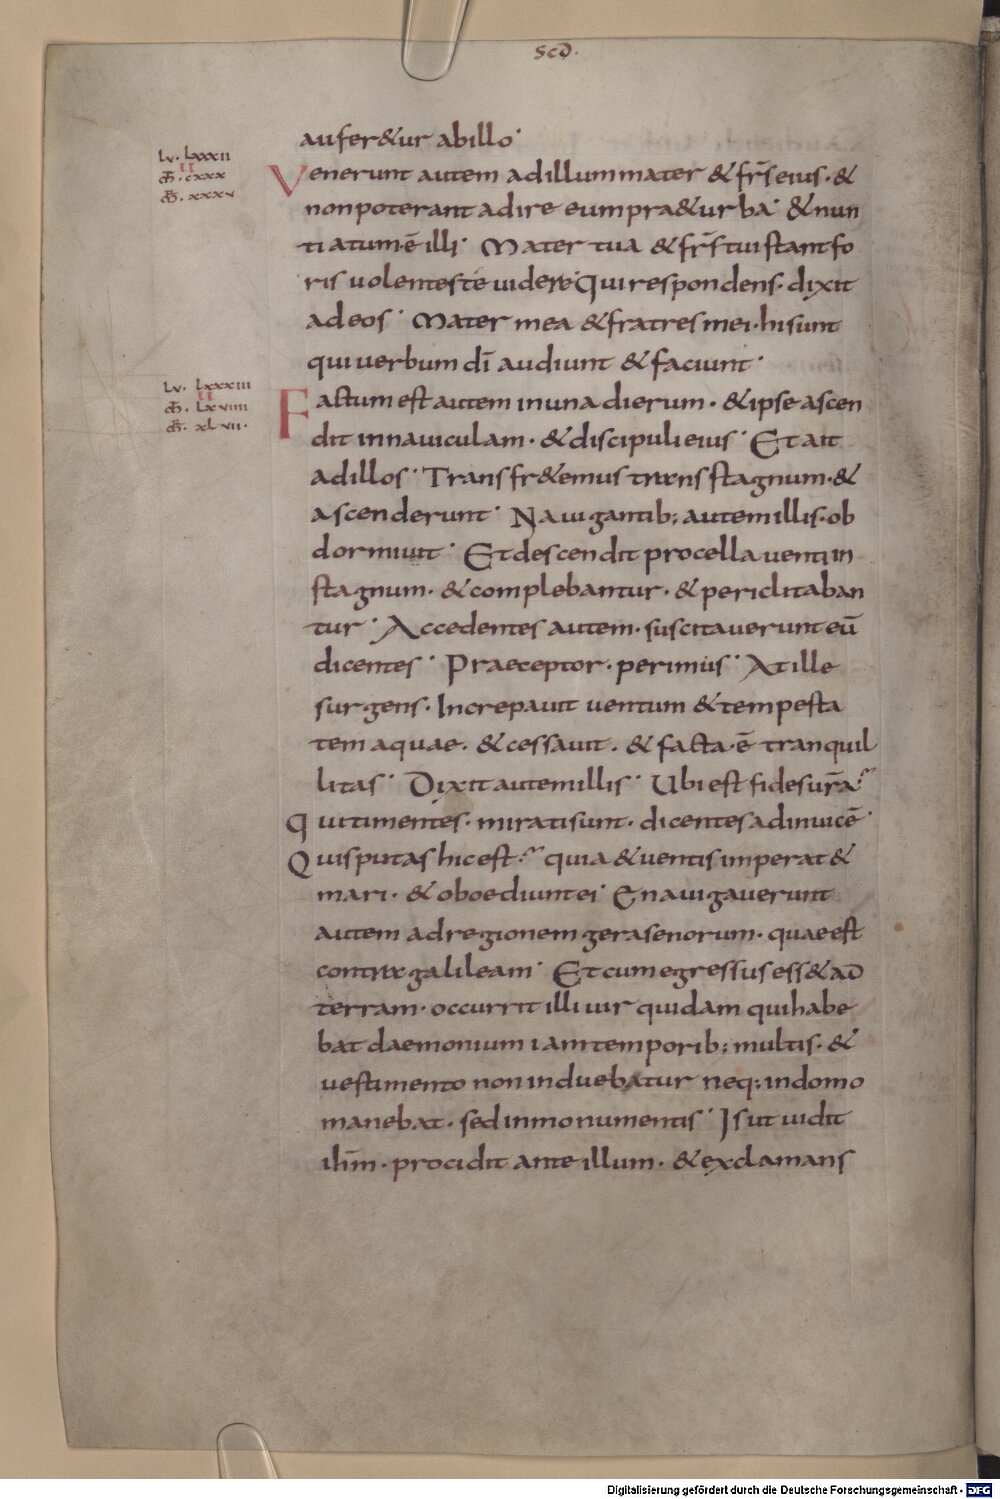 scd̄.
auferetur abillo·
lv. lxxxii
II
m̄. cxxx
m̄. xxxv
Venerunt autem adillum mater & fr̄s eius· &
nonpoterant adire eum prae&urba· & nun
tiatum ē illi· Mater tua & fr̄s tui stant fo
ris uolentes te uidere· Qui respondens· dixit
adeos· Mater mea & fratres mei· hi sunt
qui uerbum dī audiunt & faciunt·
lv. lxxxiii
II
m̄. lxviiii
m̄. xlvii·
Factum est autem inuna dierum· & ipse ascen
dit innauiculam· & discipuli eius· Et ait
adillos· Transfr&emus trans stagnum· &
ascenderunt· Nauigantib; autem illis· ob
dormiuit· Et descendit procella uenti in
stagnum· & complebantur· & periclitaban
tur· Accedentes autem· suscitauerunt eū
dicentes· Praeceptor· perimus· At ille
surgens· Increpauit uentum & tempesta
tem aquae· & cessauit· & facta ē tranquil
litas· Dixit autem illis· Ubi est fides ur̄a·
Qui timentes· mirati sunt· dicentes adinuicē·
Quis putas hic est· quia & uentis imperat &
mari· & oboediunt ei· Enauigauerunt
autem adregionem gerasenorum· quae est
contra galileam· Et cum egressus ess& ad
terram· occurrit illi uir quidam qui habe
bat daemonium iam temporib; multis· &
uestimento non induebatur neq; indomo
manebat· sed inmonumentis· Is ut uidit
ihm̄· procidit ante illum· & exclamans
Digitalisierung gefördert durch die Deutsche Forschungsgemeinschaft - DFG